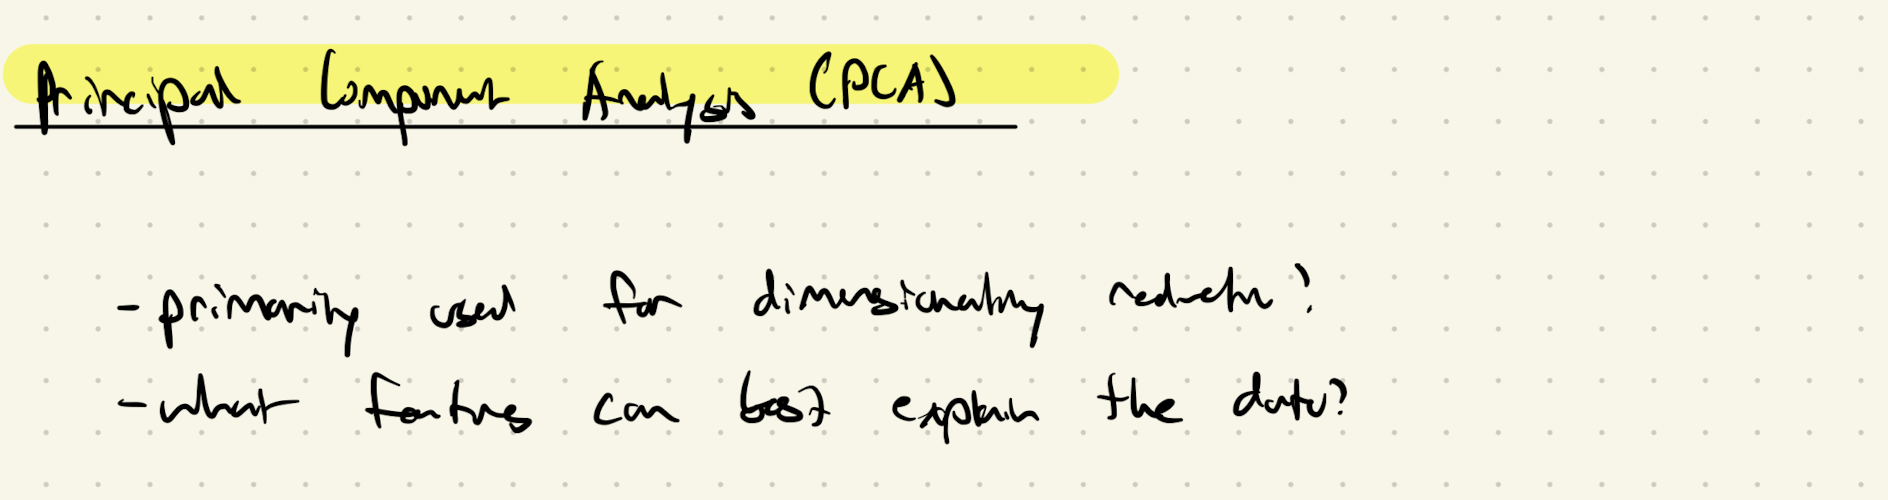 Principal Component Analysis (PCA)
- primarily used for dimensionality reduction?
- what features can best explain the data?